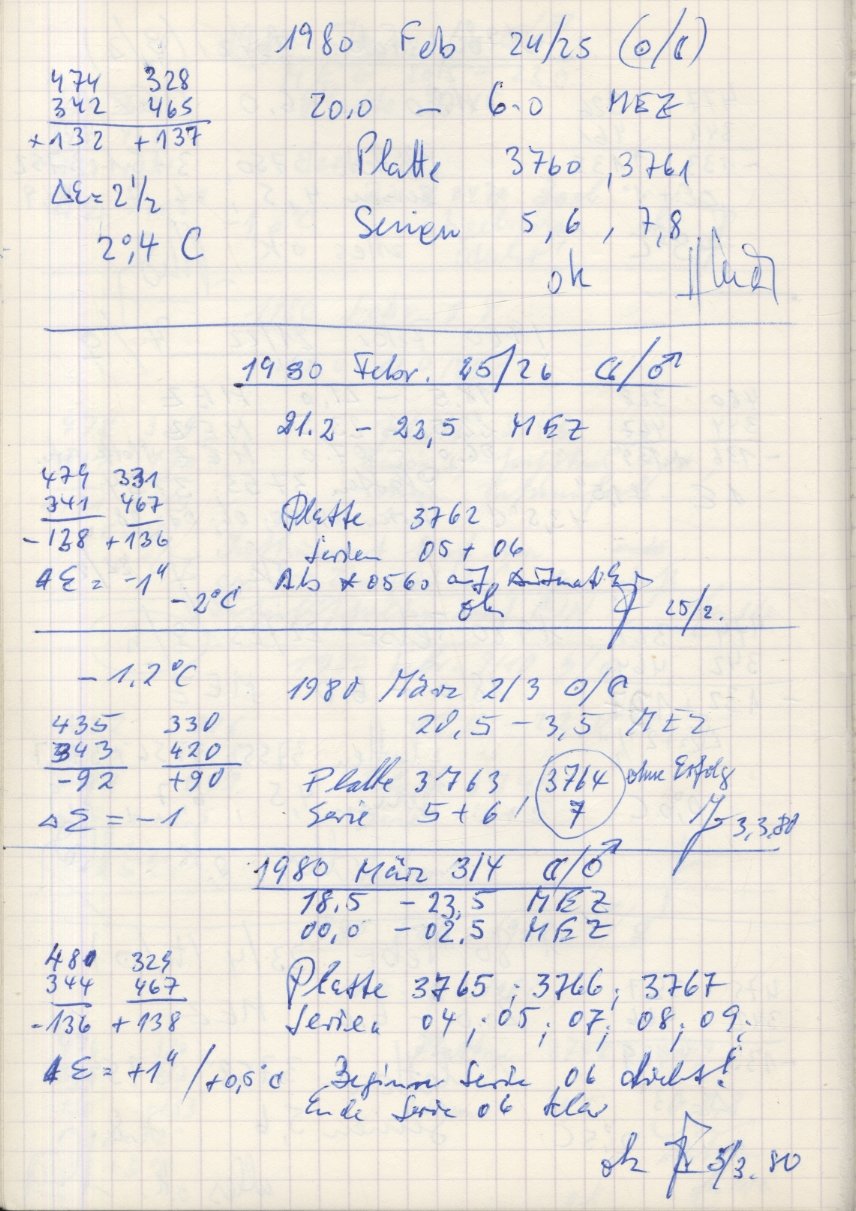 1980 Feb 24/25 (☉/☾)
474 328
342 465
+132 +137
20,0 – 6.0 MEZ
Platte 3760, 3761
ΔΣ = 2 1/2
Serien 5, 6, 7, 8
2°,4 C
ok
1980 Febr. 25/26 ☾/♂
21.2 – 23,5 MEZ
479 331
341 467
-138 +136
Platte 3762
Serien 05 + 06
ΔΣ = -1"
Ab *0560 auf Automatik
-2°C
ok 25/2.
-1.2°C
1980 März 2/3 ☉/☾
435 330
20,5 – 3,5 MEZ
343 420
-92 +90
Platte 3763, 3764 ohne Erfolg
Serie 5+6, 7
ΔΣ = -1
3.3.80
1980 März 3/4 ☾/♂
18.5 – 23,5 MEZ
00,0 – 02.5 MEZ
480 329
344 467
-136 +138
Platte 3765; 3766; 3767
Serien 04; 05; 07; 08; 09;
ΔΣ = +1" / +0,5°C
Beginn Serie 06 dicht!
Ende Serie 06 klar
ok 3/3.80